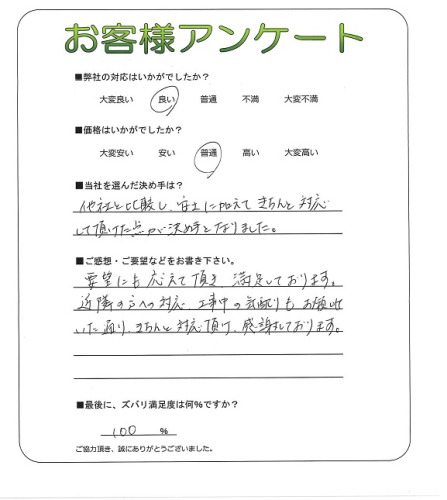 お客様アンケート
■弊社の対応はいかがでしたか？
大変良い 良い 普通 不満 大変不満
■価格はいかがでしたか？
大変安い 安い 普通 高い 大変高い
■当社を選んだ決め手は？
他社と比較し、安土に加えてきちんと対応
して頂けた点が決め手となりました。
■ご感想・ご要望などをお書き下さい。
要望にも応えて頂き、満足しております。
近隣の方への対応、工事中の気配りもお願いして
いた通り、きちんと対応頂け、感謝しております。
■最後に、ズバリ満足度は何％ですか？
100 ％
ご協力頂き、誠にありがとうございました。